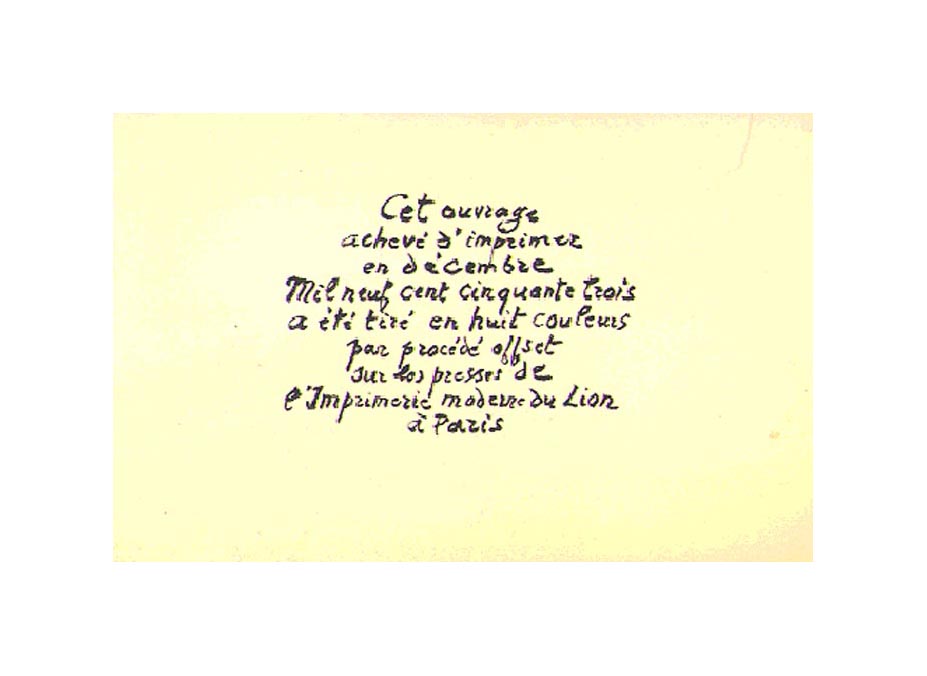 Cet ouvrage
achevé d'imprimer
en décembre
Mil neuf cent cinquante trois
a été tiré en huit couleurs
par procédé offset
sur les presses de
l'Imprimerie moderne du Lion
à Paris